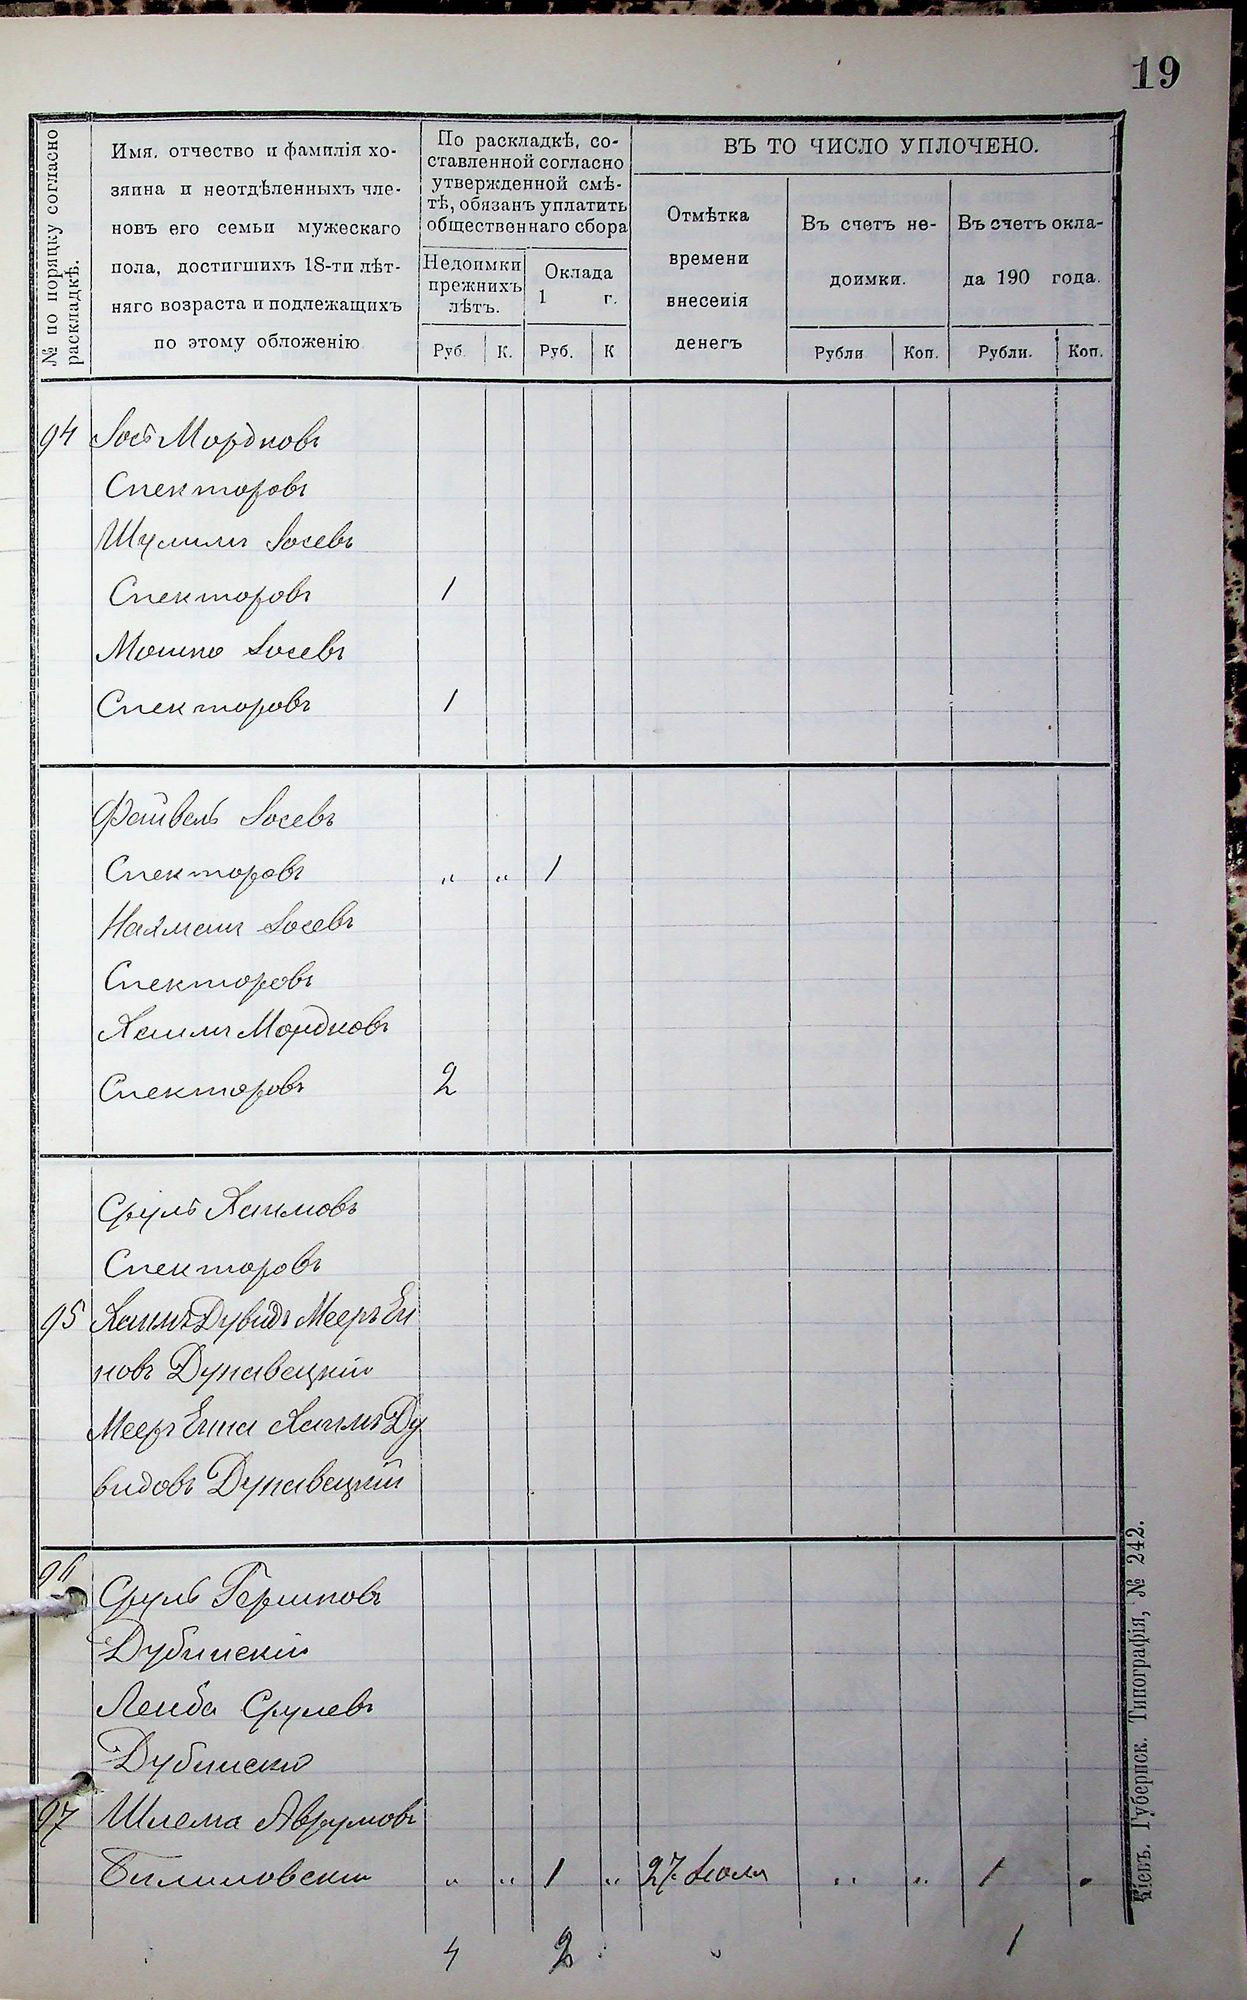 19
№ по порядку согласно
раскладкѣ.
Имя, отчество и фамилія хо-
зяина и неотдѣленныхъ чле-
новъ его семьи мужескаго
пола, достигшихъ 18-ти лѣт-
няго возраста и подлежащихъ
по этому обложенію
По раскладкѣ, со-
ставленной согласно
утвержденной смѣ-
тѣ, обязанъ уплатить
общественнаго сбора
Недоимки
прежнихъ
лѣтъ.
Оклада
1 г.
Руб. К. Руб. К
ВЪ ТО ЧИСЛО УПЛОЧЕНО.
Отмѣтка
времени
внесенія
денегъ
Въ счетъ не-
доимки.
Въ счетъ окла-
да 190 года.
Рубли Коп. Рубли. Коп.
94 Іось Мордковъ
Спекторовъ
Шулимъ Іосевъ
Спекторовъ 1
Мошко Іосевъ
Спекторовъ 1
Файвель Іосевъ
Спекторовъ „ „ 1
Нахманъ Іосевъ
Спекторовъ
Хаимъ Мордковъ
Спекторовъ 2
Сруль Хаимовъ
Спекторовъ
95 Хаимъ Дувидъ Мееръ Ел
ковъ Дунавецкій
Мееръ Хаимъ Ду
видовъ Дунавецкій
96
Сруль Гершковъ
Дубинскій
Лейба Срулевъ
Дубинскій
97 Шлема Аврумовъ
Билиловскій „ „ 1 „ 27 Іюля „ „ 1 „
4 2 1
Кіевъ. Губернск. Типографія, № 242.